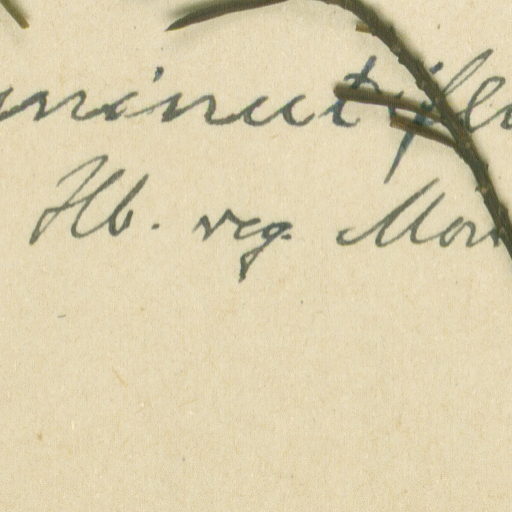 minutifl
Hb. reg. Mon